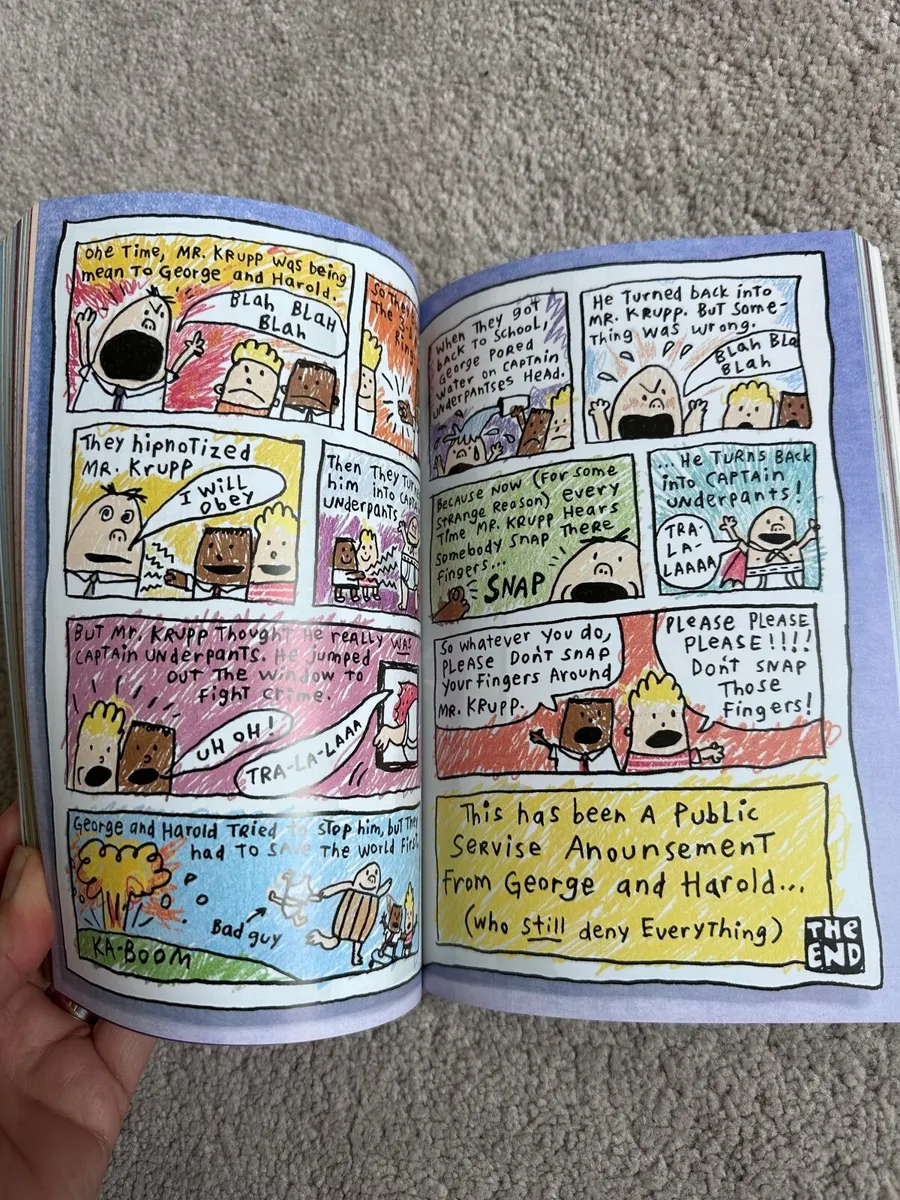 One Time, MR. KRUPP was being
mean To George and Harold.
BLah BLAH
BLah
So They
The
They hipnoTized
MR. KRUPP
I WiLL
Obey
Then They
him inTo
Underpants
BUT MR. KRUPP ThoughT He really was
CAPTAIN UNDerpanTS. He jumped
OUT The WINDOW TO
FighT crime.
UH OH!
TRA-LA-LAAA
George and Harold TRied To STop him, buT They
had To SAVE The World FirsT
Bad guy
KA-BOOM
When They got
back To School,
George PoRed
Water on CAPTAIN
UnderpanTses HeAd.
He TURNED bACK inTo
MR. KRUPP. BUT Some-
Thing was wrong.
BLAH BLA
BLah
BecAuse NOW (For some
STRANge ReasoN) every
Time MR. KRUPP HeARS
Somebody SNAP There
fingers...
SNAP
...He TURNS BACK
inTo CAPTAIN
Underpants!
TRA-
LA-
LAAAA
So whaTever you do,
PLEASE Don'T SNAP
Your Fingers Around
MR. KRUPP.
PLEASE PLEASE
PLEASE!!!!
Don'T SNAP
Those
Fingers!
This has been A Public
Servise AnounsemenT
From George and Harold...
(who still deny EveryThing)
THE
END